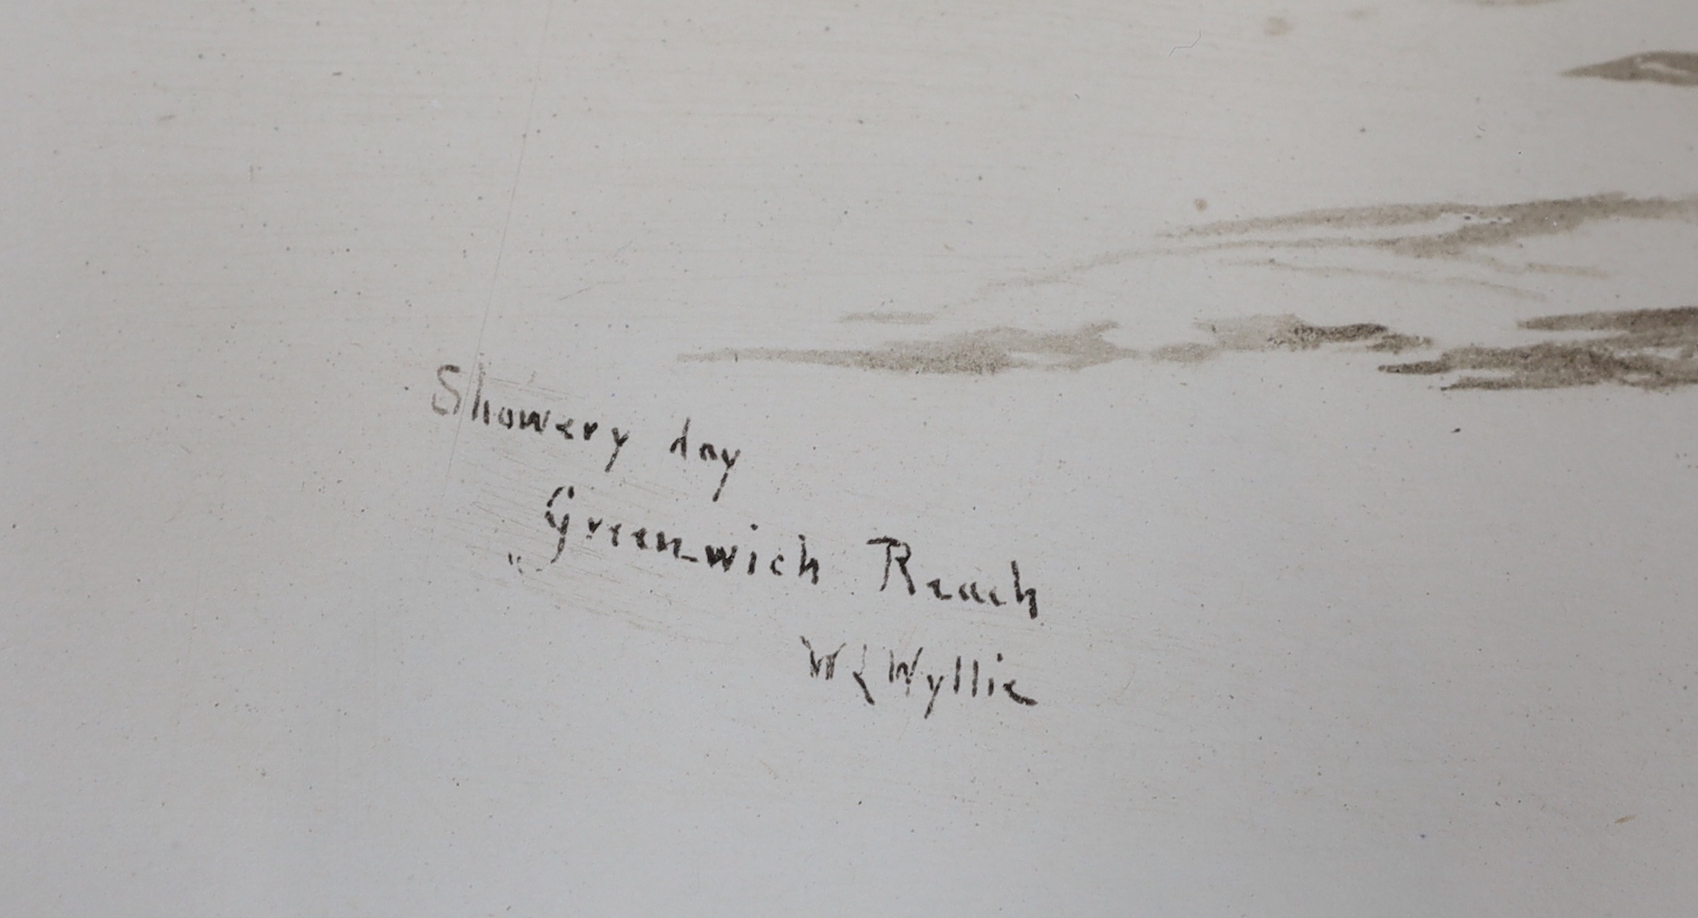 Showery day
Greenwich Reach
W L Wyllie